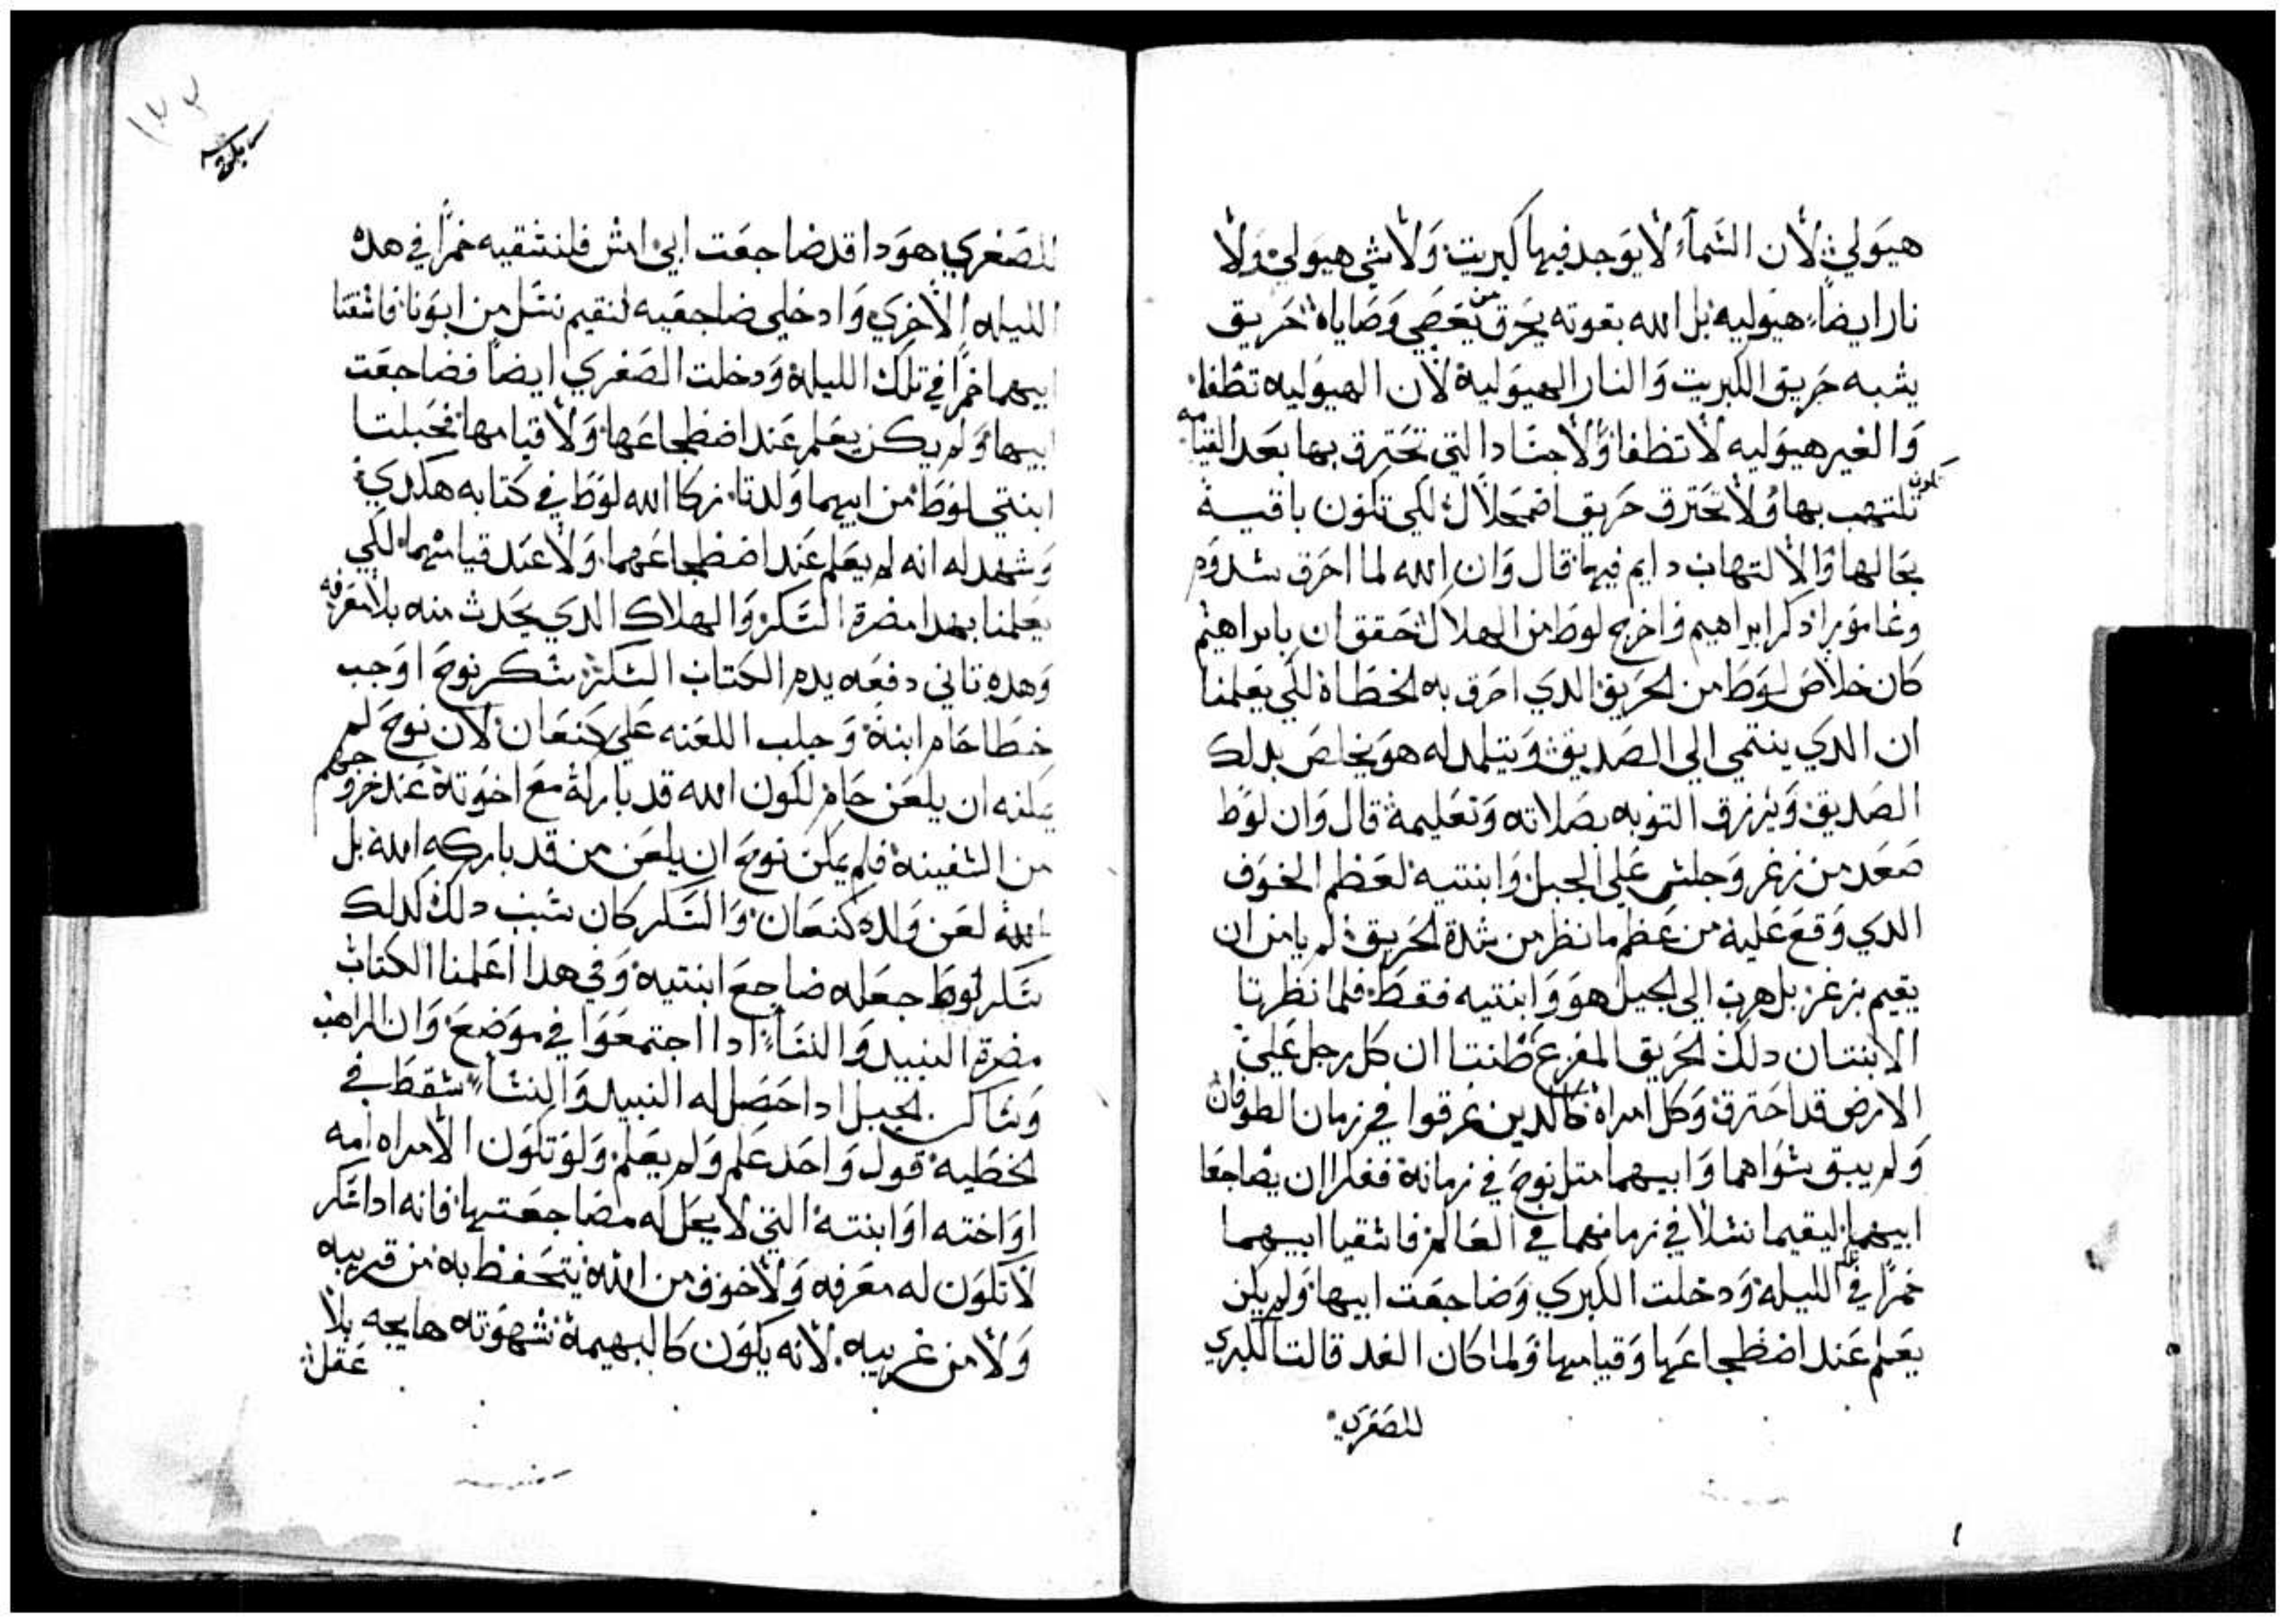 هيولي لان السماء لا يوجد فيها كبريت ولا شي هيولي ولا
نار ايضا هيوليه بل الله بقوته يحرق من يعصي وصاياه حريق
يشبه حريق الكبريت والنار الهيوليه لان الهيوليه تطفا
والغير هيوليه لا تطفا والاجساد التي تحترق بها بعد القيامه
تكون تلتهب بها ولا تحترق حريق اضمحلال لكي تكون باقيه
بحالها والالتهاب دايم فيها قال وان الله لما احرق سدوم
وغامورا ذكر ابراهيم واخرج لوط من الهلاك تحقق ان بابراهيم
كان خلاص لوط من الحريق الدي احرق به الخطاه لكي يعلمنا
ان الدي ينتمي الي الصديق ويتلمد له هو يخلص بدلك
الصديق ويرزق التوبه بصلاته وتعليمه قال وان لوط
صعد من زغر وجلس علي الجبل وابنتيه لعظم الخوف
الدي وقع عليه من عظم ما نظر من شدة الحريق لم يامن ان
يقيم بزغر بل هرب الي الجبل هو وابنتيه فقط فلما نظرتا
الابنتان دلك الحريق المفزع ظنتا ان كل رجل علي
الارض قد احترق وكل امراه كالدين غرقوا في زمان الطوفان
ولم يبق سواهما وابيهما متل نوح في زمانه ففكرا ان يضاجعا
ابيهما ليقيما نسلا في زمانهما في العالم فاسقيا ابيهما
خمرا في تلك الليله ودخلت الكبري وضاجعت ابيها ولم يكن
يعلم عند اضطجاعها وقيامها ولما كان الغد قالت الكبري
للصغري
للصغري هودا قد ضاجعت ابي امس فلنسقيه خمرا في هده
الليله الاخري وادخلي ضاجعيه لنقيم نسل من ابونا فاسقتا
ابيهما خمرا في تلك الليله ودخلت الصغري ايضا فضاجعت
ابيها ولم يكن يعلم عند اضطجاعها ولا قيامها فحبلتا
ابنتي لوط من ابيهما وولدتا زكا الله لوط في كتابه هكدي
وشهد له انه لم يعلم عند اضطجاعهما ولا عند قيامهما لكي
يعلمنا بهدا مضرة السكر والهلاك الدي يحدث منه بلا معرفه
وهده تاني دفعه يدم الكتاب السكر سكر نوح اوجب
خطا حام ابنه وجلب اللعنه علي كنعان لان نوح لم
يمكنه ان يلعن حام لكون الله قد باركه مع اخوته عند خروجهم
من السفينه فلم يمكن نوح ان يلعن من قد باركه الله بل
لعن ولده كنعان والسكر كان سبب دلك كدلك
سكر لوط جعله ضاجع ابنتيه وفي هدا اعلمنا الكتاب
مضرة النبيد والنساء ادا اجتمعوا في موضع وان الراهب
وساكن الجبل ادا حصل له النبيد والنساء سقط في
الخطيه قول واحد علم ولم يعلم ولو تكون الامراه امه
او اخته او ابنته التي لا يحل له مضاجعتها فانه ادا سكر
لا تكون له معرفه ولا خوف من الله يتحفظ به من قريبه
ولا من غريبه لانه يكون كالبهيمه شهوته هايجه بلا
عقل